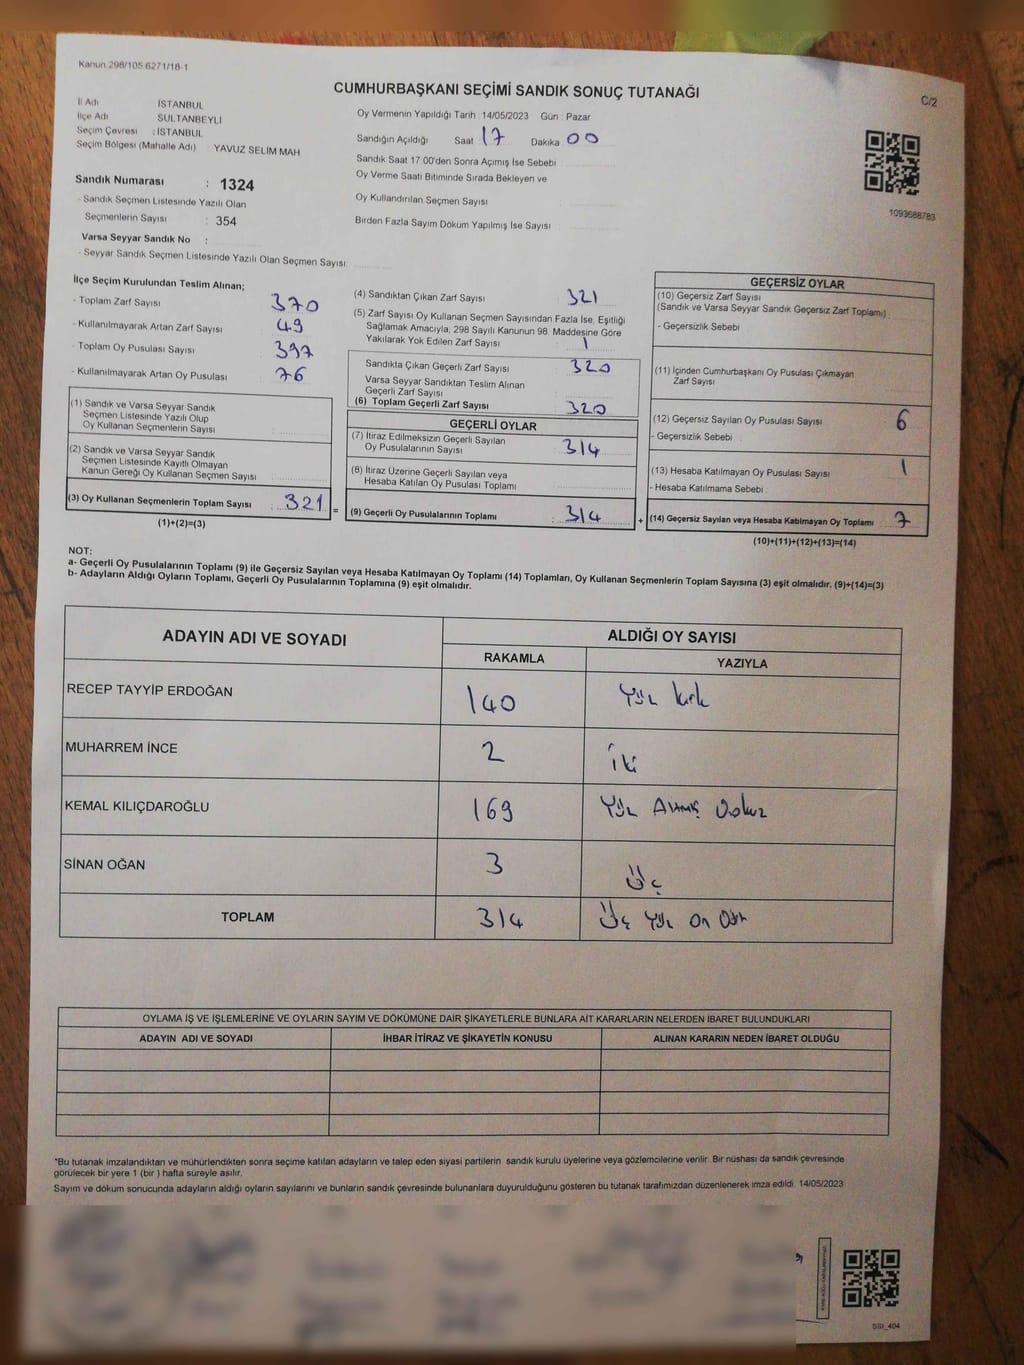 Kanun 298/105 6271/18-1
CUMHURBAŞKANI SEÇİMİ SANDIK SONUÇ TUTANAĞI
C/2
İl Adı İSTANBUL
İlçe Adı SULTANBEYLİ
Seçim Çevresi : İSTANBUL
Seçim Bölgesi (Mahalle Adı) YAVUZ SELİM MAH
Sandık Numarası : 1324
- Sandık Seçmen Listesinde Yazılı Olan
Seçmenlerin Sayısı : 354
Varsa Seyyar Sandık No :
- Seyyar Sandık Seçmen Listesinde Yazılı Olan Seçmen Sayısı
Oy Vermenin Yapıldığı Tarih 14/05/2023 Gün : Pazar
Sandığın Açıldığı Saat 17 Dakika 00
Sandık Saat 17 00'den Sonra Açımış İse Sebebi
Oy Verme Saati Bitiminde Sırada Bekleyen ve
Oy Kullandırılan Seçmen Sayısı
Birden Fazla Sayım Döküm Yapılmış İse Sayısı
1093688783
İlçe Seçim Kurulundan Teslim Alınan;
- Toplam Zarf Sayısı 370
- Kullanılmayarak Artan Zarf Sayısı 49
- Toplam Oy Pusulası Sayısı 397
- Kullanılmayarak Artan Oy Pusulası 76
(1) Sandık ve Varsa Seyyar Sandık
Seçmen Listesinde Yazılı Olup
Oy Kullanan Seçmenlerin Sayısı
(2) Sandık ve Varsa Seyyar Sandık
Seçmen Listesinde Kayıtlı Olmayan
Kanun Gereği Oy Kullanan Seçmen Sayısı
(3) Oy Kullanan Seçmenlerin Toplam Sayısı : 321 =
(1)+(2)=(3)
(4) Sandıktan Çıkan Zarf Sayısı 321
(5) Zarf Sayısı Oy Kullanan Seçmen Sayısından Fazla İse, Eşitliği
Sağlamak Amacıyla, 298 Sayılı Kanunun 98. Maddesine Göre
Yakılarak Yok Edilen Zarf Sayısı 1
Sandıkta Çıkan Geçerli Zarf Sayısı 320
Varsa Seyyar Sandıktan Teslim Alınan
Geçerli Zarf Sayısı
(6) Toplam Geçerli Zarf Sayısı 320
GEÇERLİ OYLAR
(7) İtiraz Edilmeksizin Geçerli Sayılan
Oy Pusulalarının Sayısı 314
(8) İtiraz Üzerine Geçerli Sayılan veya
Hesaba Katılan Oy Pusulası Toplamı
(9) Geçerli Oy Pusulalarının Toplamı : 314 +
GEÇERSİZ OYLAR
(10) Geçersiz Zarf Sayısı
(Sandık ve Varsa Seyyar Sandık Geçersiz Zarf Toplamı)
- Geçersizlik Sebebi
(11) İçinden Cumhurbaşkanı Oy Pusulası Çıkmayan
Zarf Sayısı
(12) Geçersiz Sayılan Oy Pusulası Sayısı 6
- Geçersizlik Sebebi
(13) Hesaba Katılmayan Oy Pusulası Sayısı 1
- Hesaba Katılmama Sebebi
(14) Geçersiz Sayılan veya Hesaba Katılmayan Oy Toplamı 7
(10)+(11)+(12)+(13)=(14)
NOT:
a- Geçerli Oy Pusulalarının Toplamı (9) ile Geçersiz Sayılan veya Hesaba Katılmayan Oy Toplamı (14) Toplamları, Oy Kullanan Seçmenlerin Toplam Sayısına (3) eşit olmalıdır. (9)+(14)=(3)
b- Adayların Aldığı Oyların Toplamı, Geçerli Oy Pusulalarının Toplamına (9) eşit olmalıdır.
ADAYIN ADI VE SOYADI ALDIĞI OY SAYISI
RAKAMLA YAZIYLA
RECEP TAYYİP ERDOĞAN 140 Yüz kırk
MUHARREM İNCE 2 İki
KEMAL KILIÇDAROĞLU 169 Yüz Altmış Dokuz
SİNAN OĞAN 3 Üç
TOPLAM 314 Üç Yüz On Dört
OYLAMA İŞ VE İŞLEMLERİNE VE OYLARIN SAYIM VE DÖKÜMÜNE DAİR ŞİKAYETLERLE BUNLARA AİT KARARLARIN NELERDEN İBARET BULUNDUKLARI
ADAYIN ADI VE SOYADI İHBAR İTİRAZ VE ŞİKAYETİN KONUSU ALINAN KARARIN NEDEN İBARET OLDUĞU
*Bu tutanak imzalandıktan ve mühürlendikten sonra seçime katılan adayların ve talep eden siyasi partilerin sandık kurulu üyelerine veya gözlemcilerine verilir. Bir nüshası da sandık çevresinde
görülecek bir yere 1 (bir ) hafta süreyle asılır.
Sayım ve döküm sonucunda adayların aldığı oyların sayılarını ve bunların sandık çevresinde bulunanlara duyurulduğunu gösteren bu tutanak tarafımızdan düzenlenerek imza edildi. 14/05/2023
SSI_404